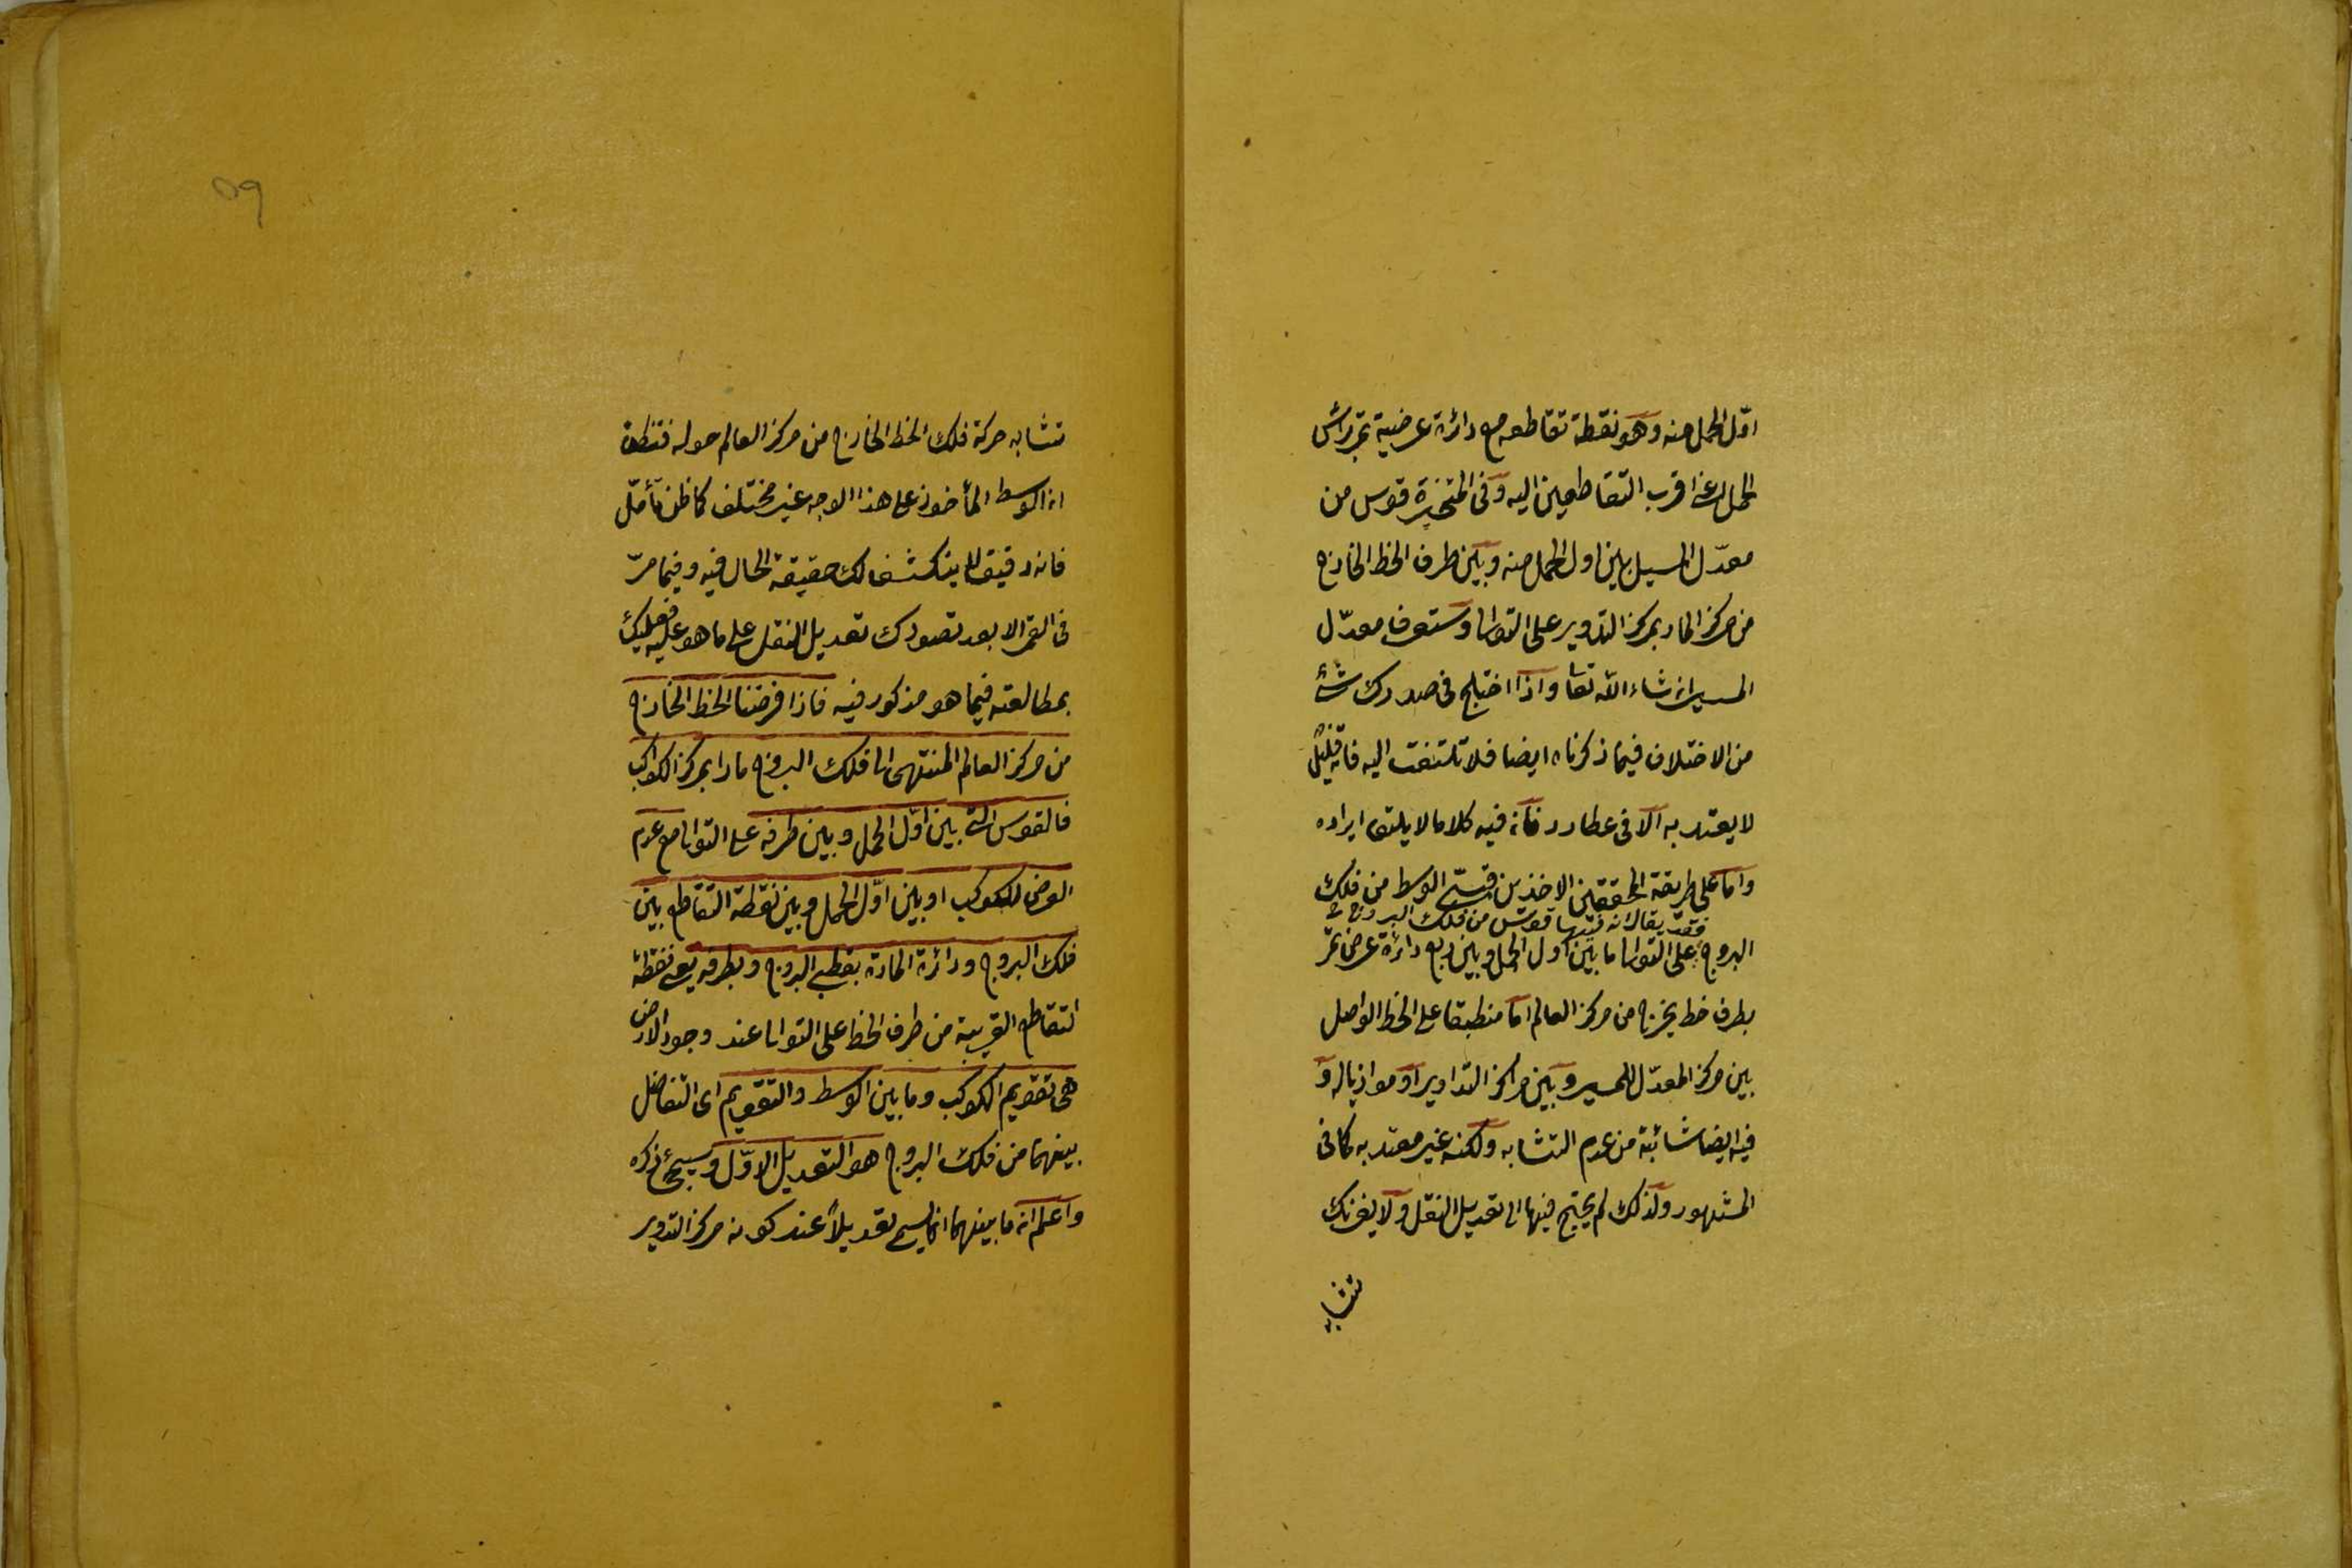 اوّل الحمل منه وهو نقطة تقاطعه مع دائرة عرضية تمر براس
الحمل اعنى اقرب التقاطعين اليه وفى المتحيّرة قوس من
معدّل المسير بين اول الحمل منه وبين طرف الخط الخارج
من مركزا لمار بمركز التدوير على التوالى وستعرف معدّل
المسير ان شاء الله تعا واذا اختلج فى صدرك شئ
من الاختلاف فيما ذكرناه ايضا فلا تلتفت اليه فانه قليل
لا يعتد به الّا فى عطارد فانه فيه كلاما لا يليق ايراده
واما على طريقة المحققين الاخذين الوسط من فلك
فقد يقال انه فيها قوس من فلك البروج
البروج على التوالى ما بين اول الحمل وبين ربع دائرة عرض تمرّ
بطرف خط يخرج من مركز العالم امّا منطبقا على الخط الواصل
بين مركز المعدّل للمسير وبين مراكز التداوير او موازيا له و
فيه ايضا شائبة من عدم التشابه ولكنه غير معتد به كما فى
المشهور ولذلك لم يحتج فيها الى تعديل النقل ولا يغرنك
تشابه
٥٩
تشابه حركة فلك الخط الخارج من مركز العالم حوله فتظن
ان الوسط المأخوذ على هذا الوجه غير مختلف كما ظن تأمّل
فانه دقيق لا ينكشف لك حقيقة الحال فيه وفيما مرّ
فى القمر الا بعد تصورك تعديل النقل على ما هو عليه فعليك
بمطالعته فيما هو مذكور فيه فاذا فرضنا الخط الخارج
من مركز العالم المنتهى الى فلك البروج مارا بمركز الكواكب
فالقوس التى بين اوّل الحمل وبين طرفه على التوالى مع عدم
العرض للكوكب او بين اوّل الحمل وبين نقطة التقاطع بين
فلك البروج ودائرة المارة بقطبى البروج وبطرفه يعنى نقطة
التقاطع القريبة من طرف الخط على التوالى عند وجود العرض
هى تقويم الكوكب وما بين الوسط والتقويم اى التفاضل
بينهما من فلك البروج هو التعديل الاوّل وسيجئ ذكره
واعلم انه ما بينهما انما يسمى تعديلاً عند كونه مركز التدوير